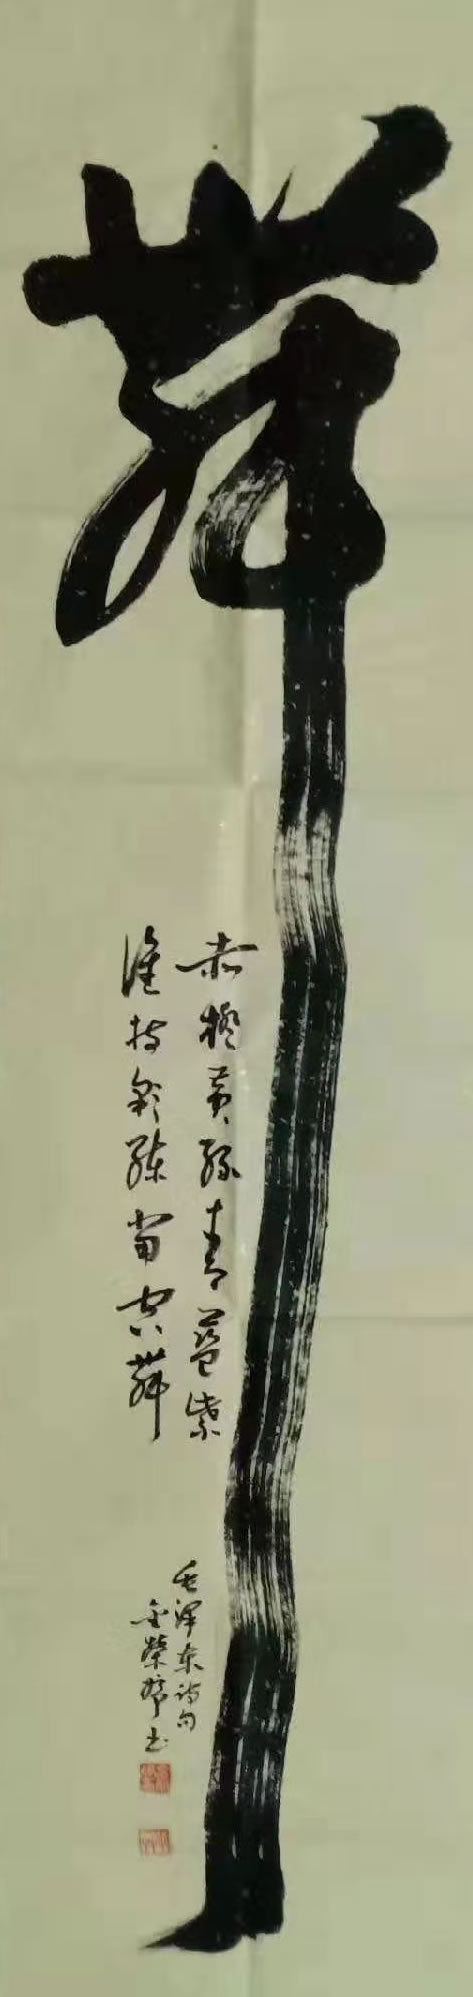 舞
赤橙黄绿青蓝紫
谁持彩练当空舞
毛泽东诗句
金荣书